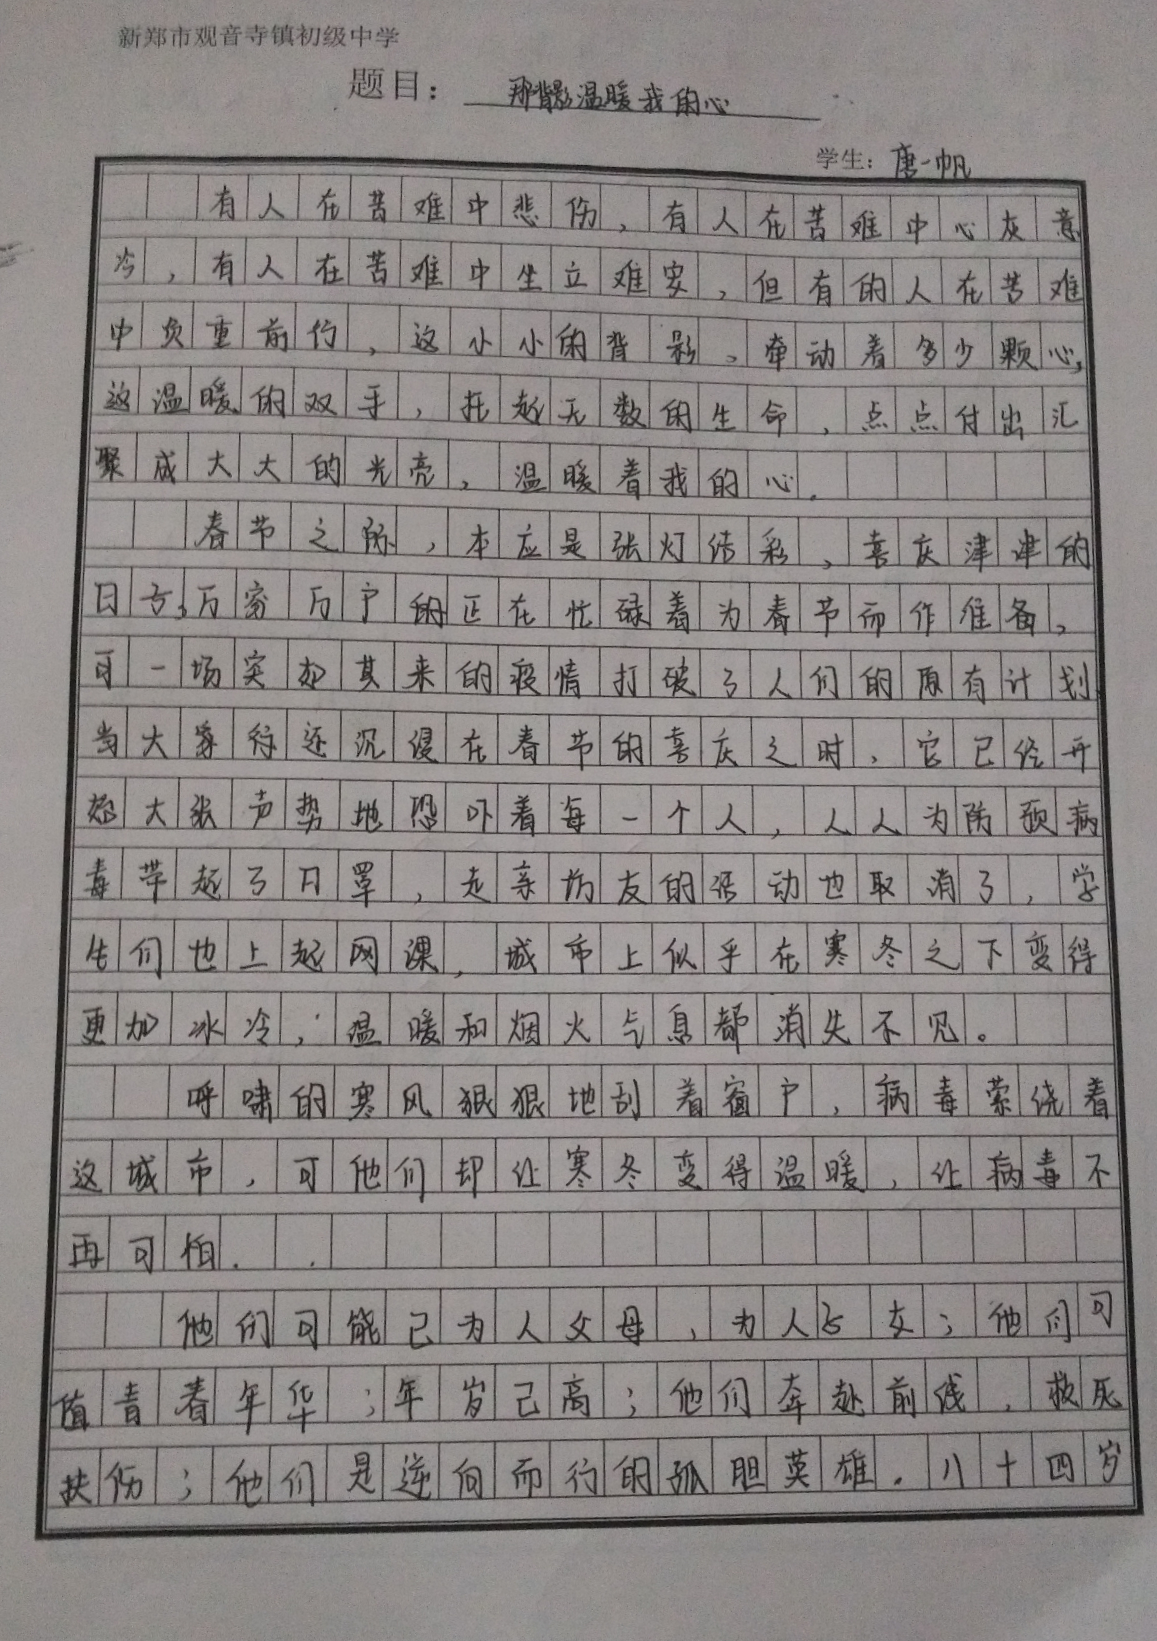 新郑市观音寺镇初级中学
题目：那背影温暖我的心
学生：唐一帆
有人在苦难中悲伤，有人在苦难中心灰意
冷，有人在苦难中坐立难安，但有的人在苦难
中负重前行，这小小的背影，牵动着多少颗心，
这温暖的双手，托起无数的生命，点点付出汇
聚成大大的光亮，温暖着我的心．
春节之际，本应是张灯结彩，喜庆津津的
日子，万家万户的正在忙碌着为春节而作准备，
可一场突如其来的疫情打破了人们的原有计划，
当大家行还沉浸在春节的喜庆之时，它已经开
始大张声势地恐吓着每一个人，人人为防预病
毒带起了口罩，走亲访友的活动也取消了，学
生们也上起网课，城市上似乎在寒冬之下变得
更加冰冷，温暖和烟火气息都消失不见。
呼啸的寒风狠狠地刮着窗户，病毒萦绕着
这城市，可他们却让寒冬变得温暖，让病毒不
再可怕．
他们可能已为人父母，为人子女；他们可
值青春年华；年岁已高；他们奔赴前线，救死
扶伤；他们是逆向而行的孤胆英雄．八十四岁